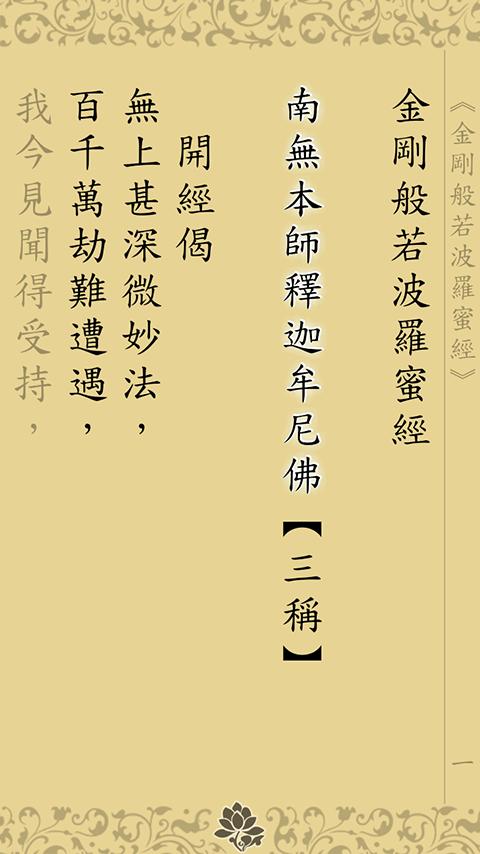 《金剛般若波羅蜜經》
一
金剛般若波羅蜜經
南無本師釋迦牟尼佛【三稱】
開經偈
無上甚深微妙法，
百千萬劫難遭遇，
我今見聞得受持，